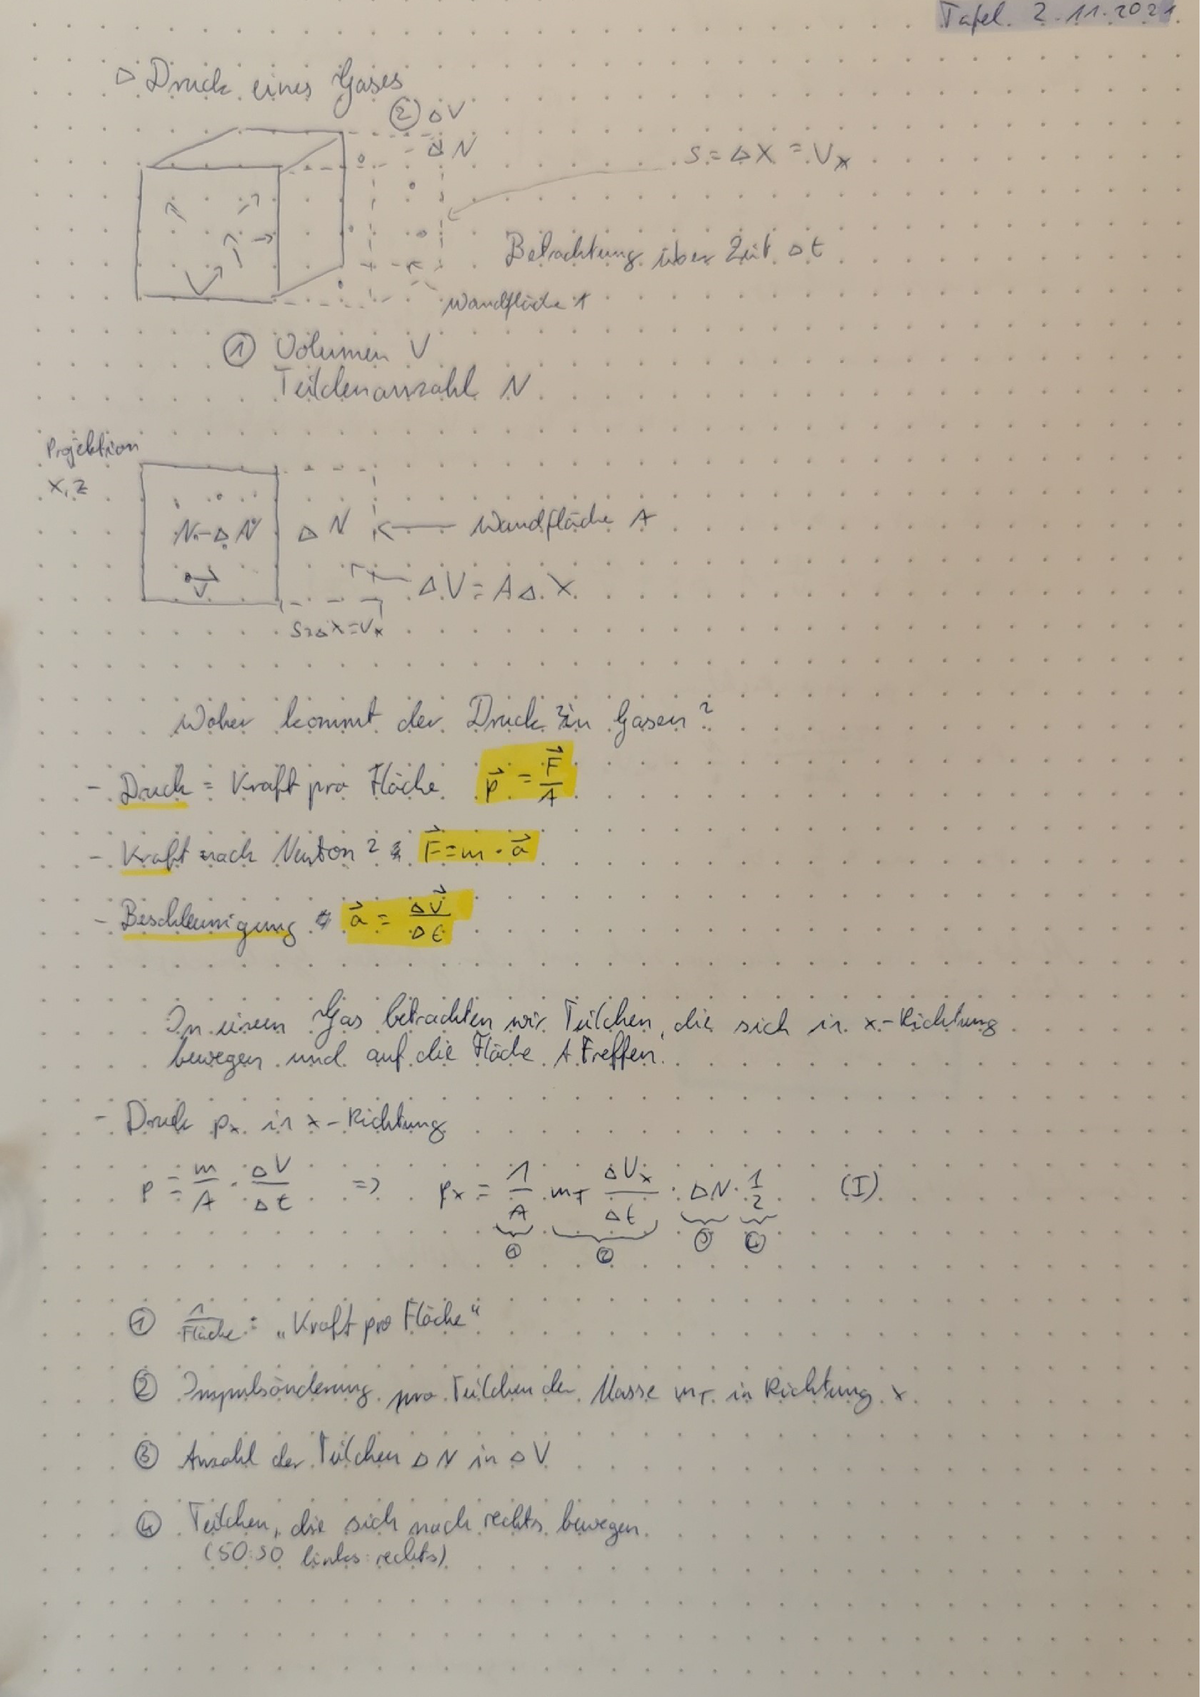 Tafel 2.11.2021
▷ Druck eines Gases
② ΔV
ΔN
s = Δx = vx
Betrachtung über Zeit Δt
Wandfläche A
① Volumen V
Teilchenanzahl N
Projektion
x, z
N-ΔN
ΔN
Wandfläche A
v
ΔV = A Δx
s=Δx=vx
Woher kommt der Druck in Gasen?
- Druck = Kraft pro Fläche p⃗ = F⃗/A
- Kraft nach Newton 2 F⃗ = m · a⃗
- Beschleunigung a⃗ = Δv⃗/Δt
In einem Gas betrachten wir Teilchen, die sich in x-Richtung
bewegen und auf die Fläche A treffen.
- Druck px in x-Richtung
p = m/A · ΔV/Δt => px = 1/A mT ΔVx/Δt · ΔN · 1/2 (I)
① ② ③ ④
① 1/Fläche : „Kraft pro Fläche"
② Impulsänderung pro Teilchen der Masse mT in Richtung x
③ Anzahl der Teilchen ΔN in ΔV
④ Teilchen, die sich nach rechts bewegen.
(50:50 links:rechts)